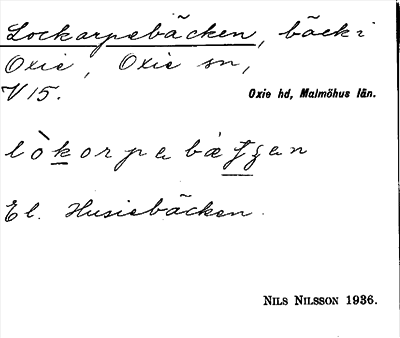 Lockarpebäcken, bäck i
Oxie, Oxie sn,
V 15. Oxie hd, Malmöhus län.
El. Husiebäcken.
NILS NILSSON 1936.